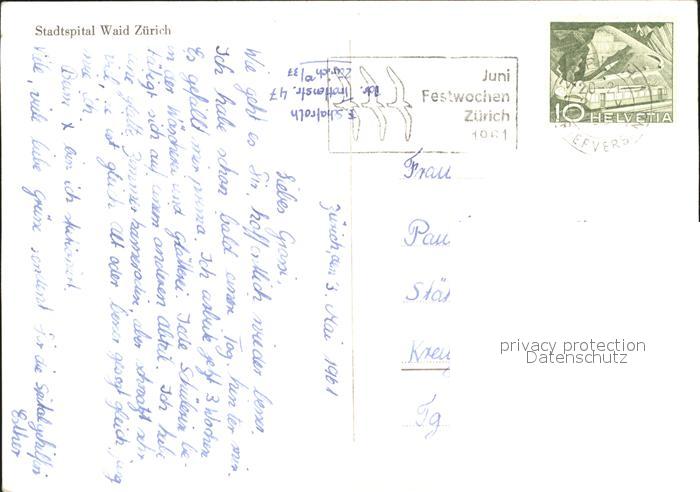 Stadtspital Waid Zürich
Juni
Festwochen
Zürich
1961
10 HELVETIA
E. Schafroth
Trottenstr. 47
Zürich 10/37
Zürich, den 3. Mai 1961
Liebes Grosi,
Wie geht es Dir, hoffentlich wieder besser.
Ich habe schon bald einen Tag hinter mir.
Es gefällt mir prima. Ich arbeite jetzt 3 Wochen
in der Wäscherei und Glätterei. Jede Schülerin be-
tätigt sich auf einem anderen Abteil. Ich habe
eine Zimmerkameradin, aber
viel, ist gleich alt oder besser gesagt gleich jung
wie ich.
Beim X bin ich stationiert.
Viele, viele liebe Grüsse sendet Dir die Spitalgehilfin
Esther
Frau
Pau
Stä
Kreu
Tg
privacy protection
Datenschutz